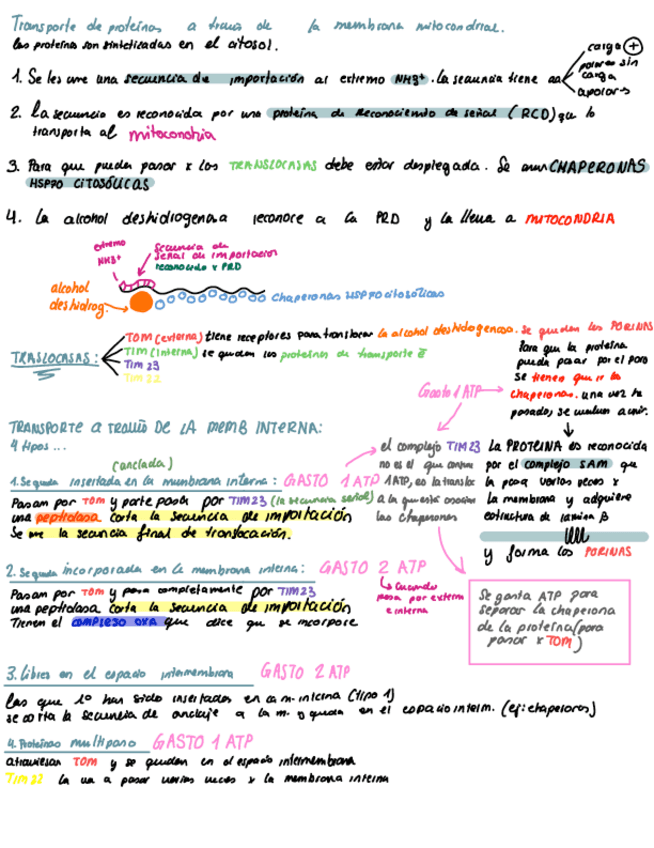 Transporte de proteínas a través de la membrana mitocondrial.
las proteínas son sintetizadas en el citosol.
carga +
polares sin carga
apolares
1. Se les une una secuencia de importación al extremo NH3+. La secuencia tiene aa
2. La secuencia es reconocida por una proteína de reconociento de señal (RCD) que lo
transporta al mitocondria
3. Para que puedan pasar x los TRANSLOCASAS debe estar desplegada. Se unen CHAPERONAS
HSP70 CITOSÓLICAS
4. La alcohol deshidrogenasa reconoce a la PRD y la lleva a MITOCONDRIA
extremo
NH3+
Secuencia de
señal de importación
reconocido x PRD
alcohol
deshidrog.
chaperonas HSP70 citosólicas
TRASLOCASAS:
TOM (externa) tiene receptores para translocar la alcohol deshidogenasa. Se quedan las PORINAS
TIM (interna) se quedan las proteínas de transporte ē
TIM 23
TIM 22
Para que la proteína
pueda pasar por el poro
se tienen que ir la
chaperonas. una vez ha
pasado, se vuelven a unir.
Gasto 1 ATP
TRANSPORTE a TRAVÉS DE LA MEMB INTERNA:
4 tipos ...
(anclada)
1. Se queda insertada en la membrana interna: GASTO 1 ATP
Pasan por TOM y parte pasa por TIM23 (la secuencia señal)
una peptidasa corta la secuencia de importación
Se une la secuencia final de translocación.
el complejo TIM23
no es el que consume
1 ATP, es la transloc
a la que está asociada
las chaperonas
LA PROTEINA es reconocida
por el complejo SAM que
la pasa varias veces x
la membrana y adquiere
estructura de lamina β
y forma las PORINAS
2. Se queda incorporada en la membrana interna: GASTO 2 ATP
Pasan por TOM y pasa completamente por TIM23
una peptidasa corta la secuencia de importación
Tienen el complejo OXA que dice que se incorpore
Cuando
pasa por externa
e interna
Se gasta ATP para
separar la chaperona
de la proteína (para
pasar x TOM)
3. Libres en el espacio intermembrana GASTO 2 ATP
las que ya han sido insertadas en la m. interna (tipo 1)
se corta la secuencia de anclaje a la m. y queda en el espacio interm. (ej: chaperonas)
4. Proteínas multipaso GASTO 1 ATP
atraviesan TOM y se quedan en el espacio intermembrana
TIM22 la va a pasar varias veces x la membrana interna